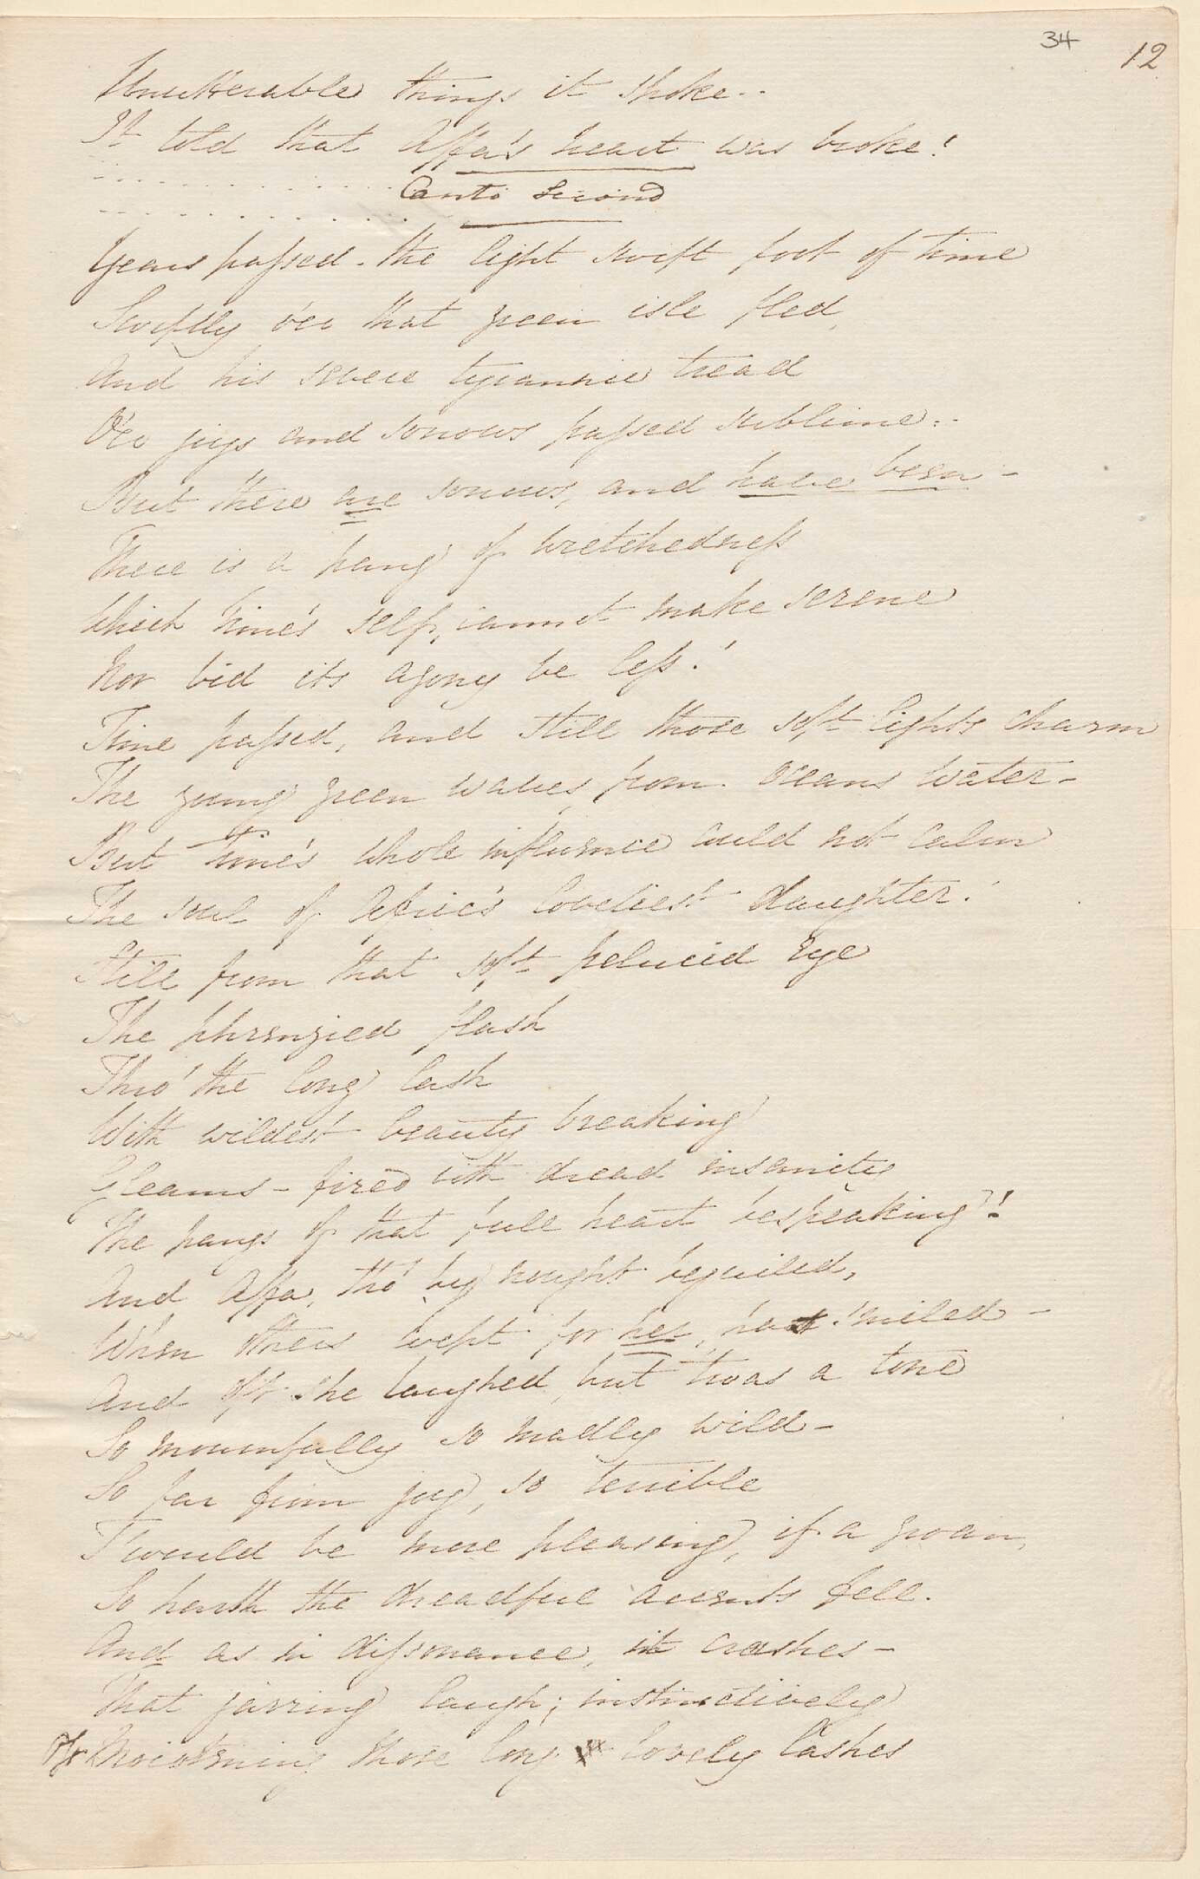 34 12
Unutterable things it spoke..
It told that Affa's heart was broke!
Canto Second
Years paſsed - the light swift foot of time
Swiftly o'er that green isle fled,
And his severe tyrannic tread
O'er joys and sorrows paſsed sublime..
But there are sorrows, and have been -
There is a pang of wretchedneſs
Which time's self, cannot make serene
Nor bid its agony be leſs!
Time paſsed, and still those soft lights charm
The young green waves from Oceans water -
But Time's whole influence could not calm
The soul of Afric's loveliest daughter!
Still from that soft pelucid eye
The phrenzied flash
Thro' the long lash
With wildest beauty breaking
Gleams - fired with dread insanity
The pangs of that full heart bespeaking!
And Affa, tho' by nought beguiled,
When others wept for her, has smiled -
And oft she laughed, but 'twas a tone
So mournfully so madly wild -
So far from joy, so terrible
T'would be more pleasing, if a groan,
So harsh the dreadful accents fell.
And as in diſsonance, it crashes -
That jarring laugh; instinctively
Oft Moistening those long lovely lashes